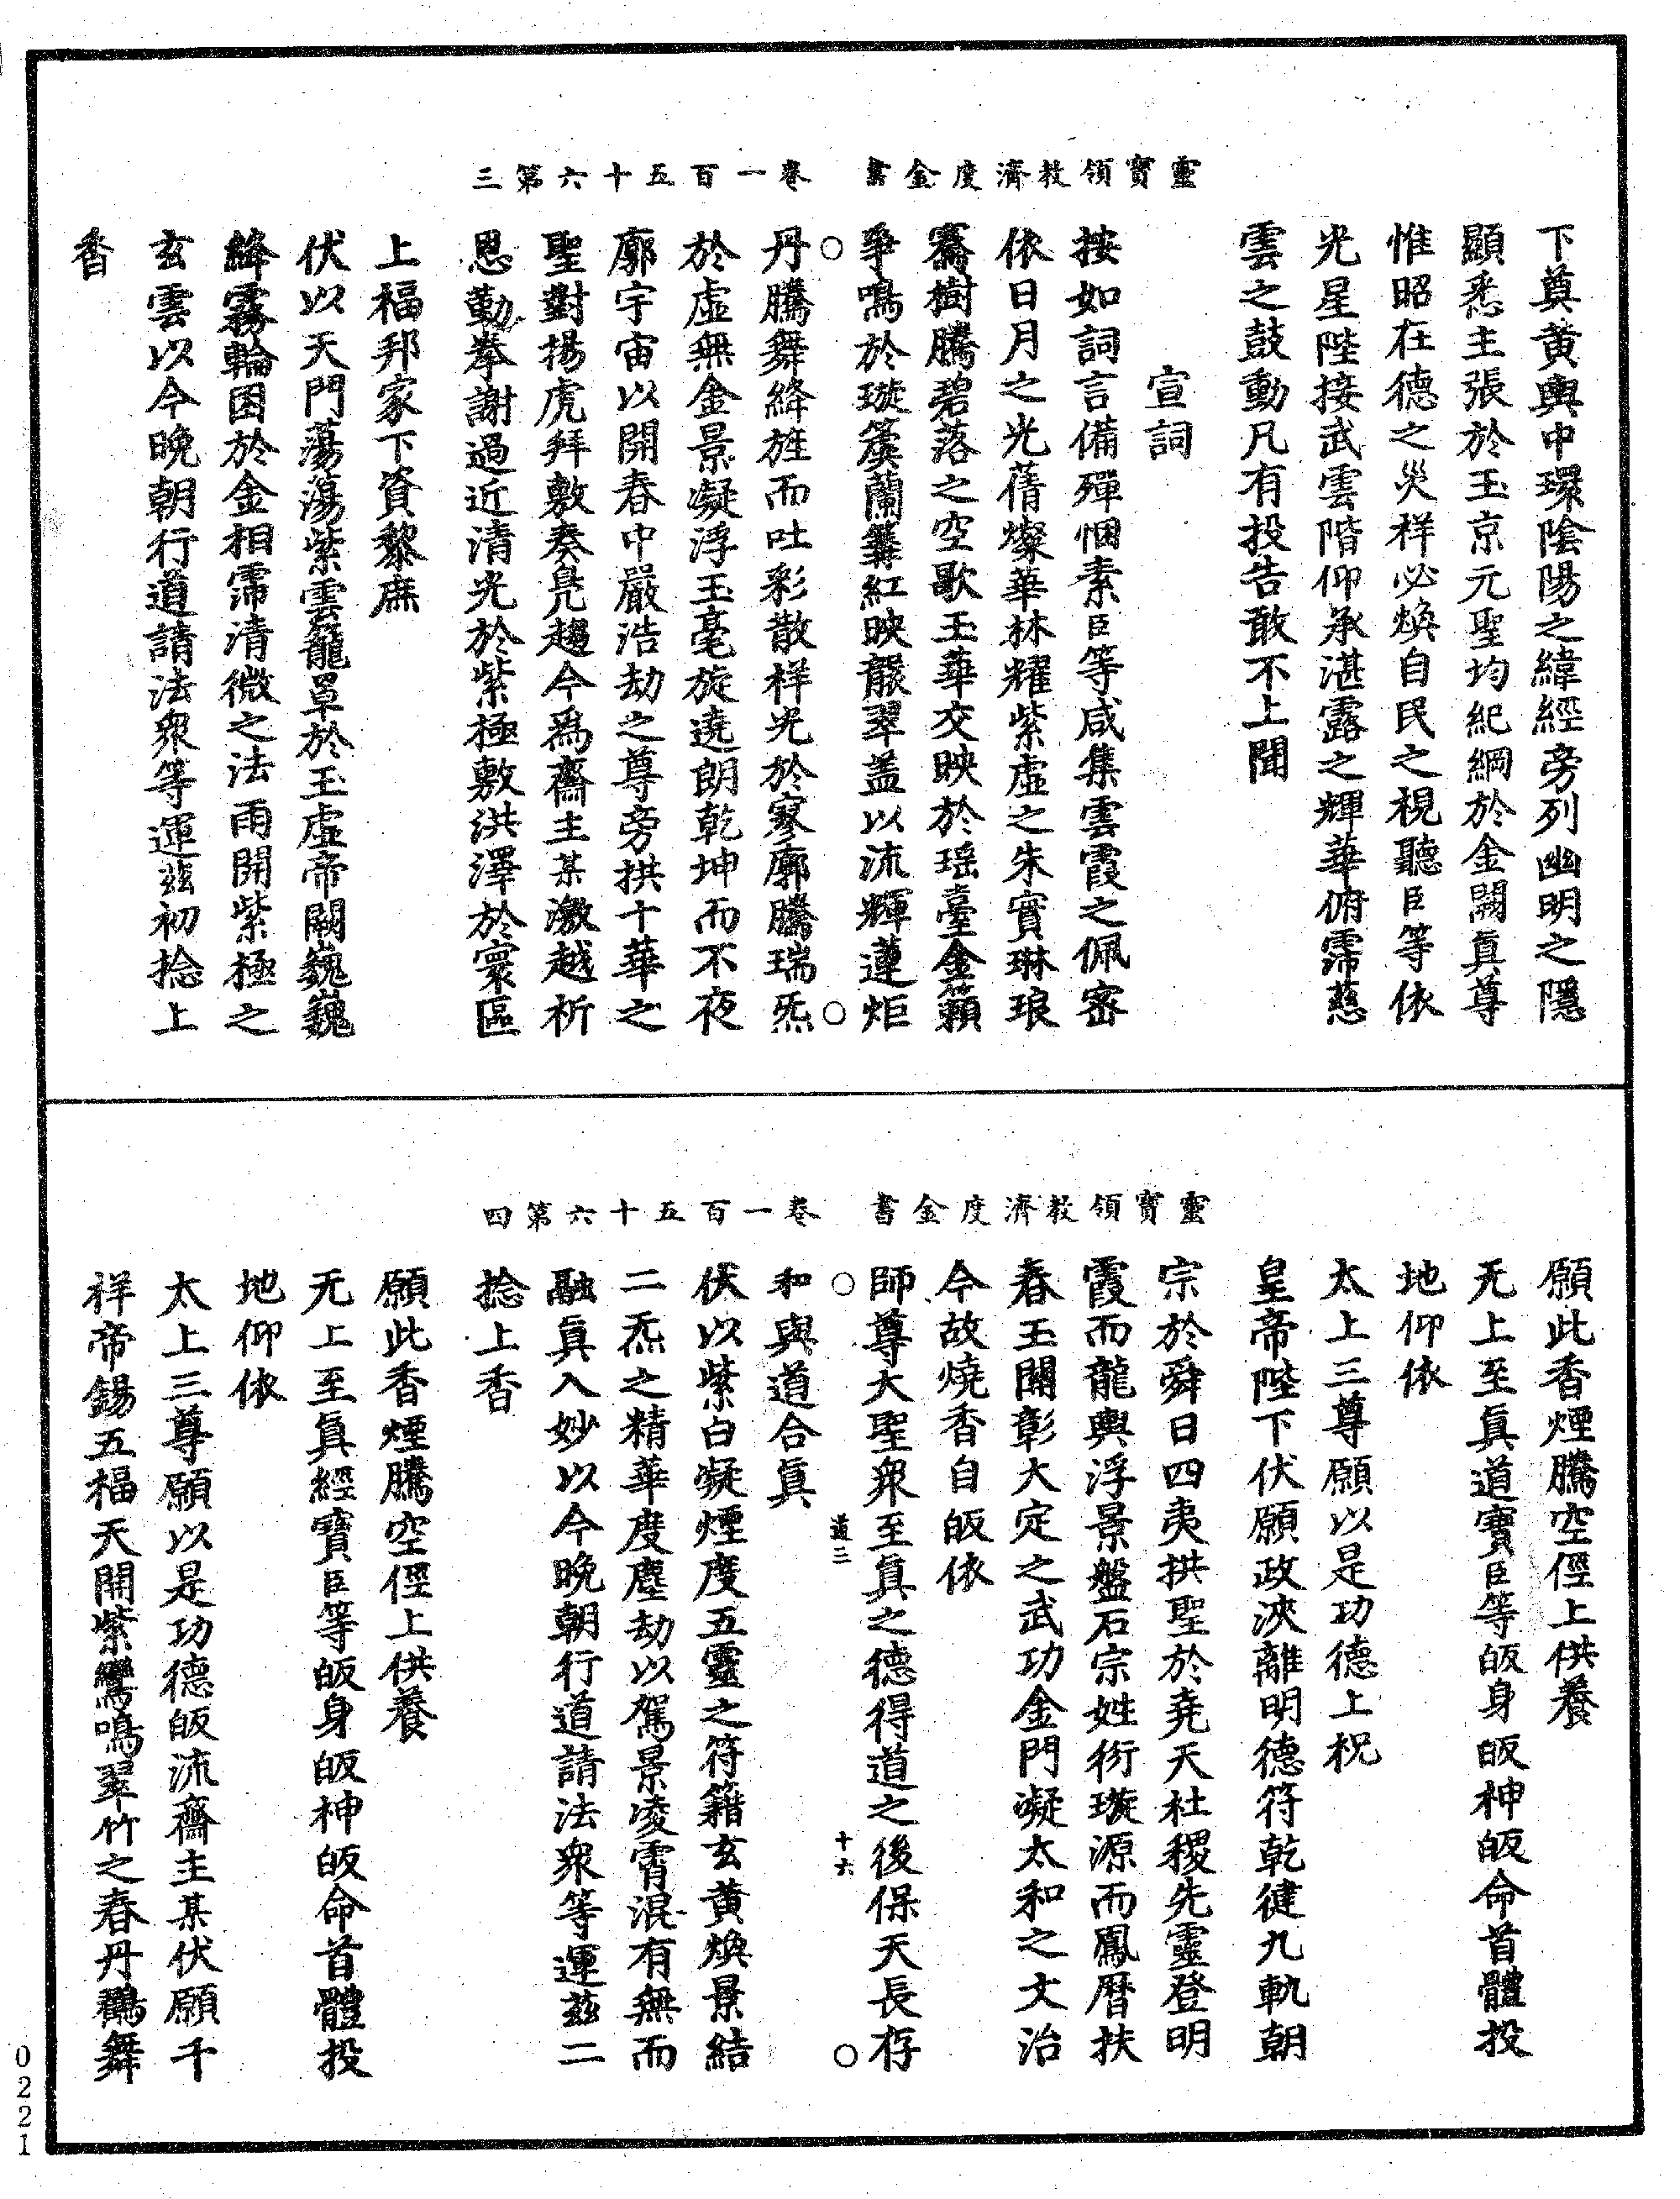 靈寶領教濟度金書　卷一百五十六第三
下奠黄輿中環陰陽之緯經旁列幽明之隱
顯悉主張於玉京元聖均紀綱於金闕真尊
惟昭在德之災祥必煥自民之視聽臣等依
光星陛接武雲階仰承湛露之輝華俯霈慈
雲之鼓動凡有投告敢不上聞
宣詞
按如詞言備殫悃素臣等咸集雲霞之佩密
依日月之光蒨燦華林耀紫虛之朱實琳琅
騫樹騰碧落之空歌玉華交映於瑶臺金籟
爭鳴於璇篌蘭篝紅映靉翠蓋以流輝蓮炬
丹騰舞絳旌而吐彩散祥光於寥廓騰瑞炁
於虛無金景凝浮玉毫旋遶朗乾坤而不夜
廓宇宙以開春中嚴浩劫之尊旁拱十華之
聖對揚虎拜敷奏鳧趨今爲齋主某激越析
恩勤拳謝過近清光於紫極敷洪澤於寰區
上福邦家下資黎庶
伏以天門蕩蕩紫雲籠罩於玉虛帝闕巍巍
絳霧輪囷於金相霈清微之法雨開紫極之
玄雲以今晚朝行道請法衆等運茲初捻上
香
靈寶領教濟度金書　卷一百五十六第四
願此香煙騰空徑上供養
无上至真道寶臣等皈身皈神皈命首體投
地仰依
太上三尊願以是功德上祝
皇帝陛下伏願政浹離明德符乾健九軌朝
宗於舜日四夷拱聖於堯天社稷先靈登明
霞而龍輿浮景盤石宗姓衍璇源而鳳曆扶
春玉關彰大定之武功金門凝太和之文治
今故燒香自皈依
師尊大聖衆至真之德得道之後保天長存
道三　十六
和與道合真
伏以紫白凝煙度五靈之符籍玄黄煥景結
二炁之精華度塵劫以駕景凌霄混有無而
融真入妙以今晚朝行道請法衆等運茲二
捻上香
願此香煙騰空徑上供養
无上至真經寶臣等皈身皈神皈命首體投
地仰依
太上三尊願以是功德皈流齋主某伏願千
祥帝錫五福天開紫鸞鳴翠竹之春丹鶴舞
0221